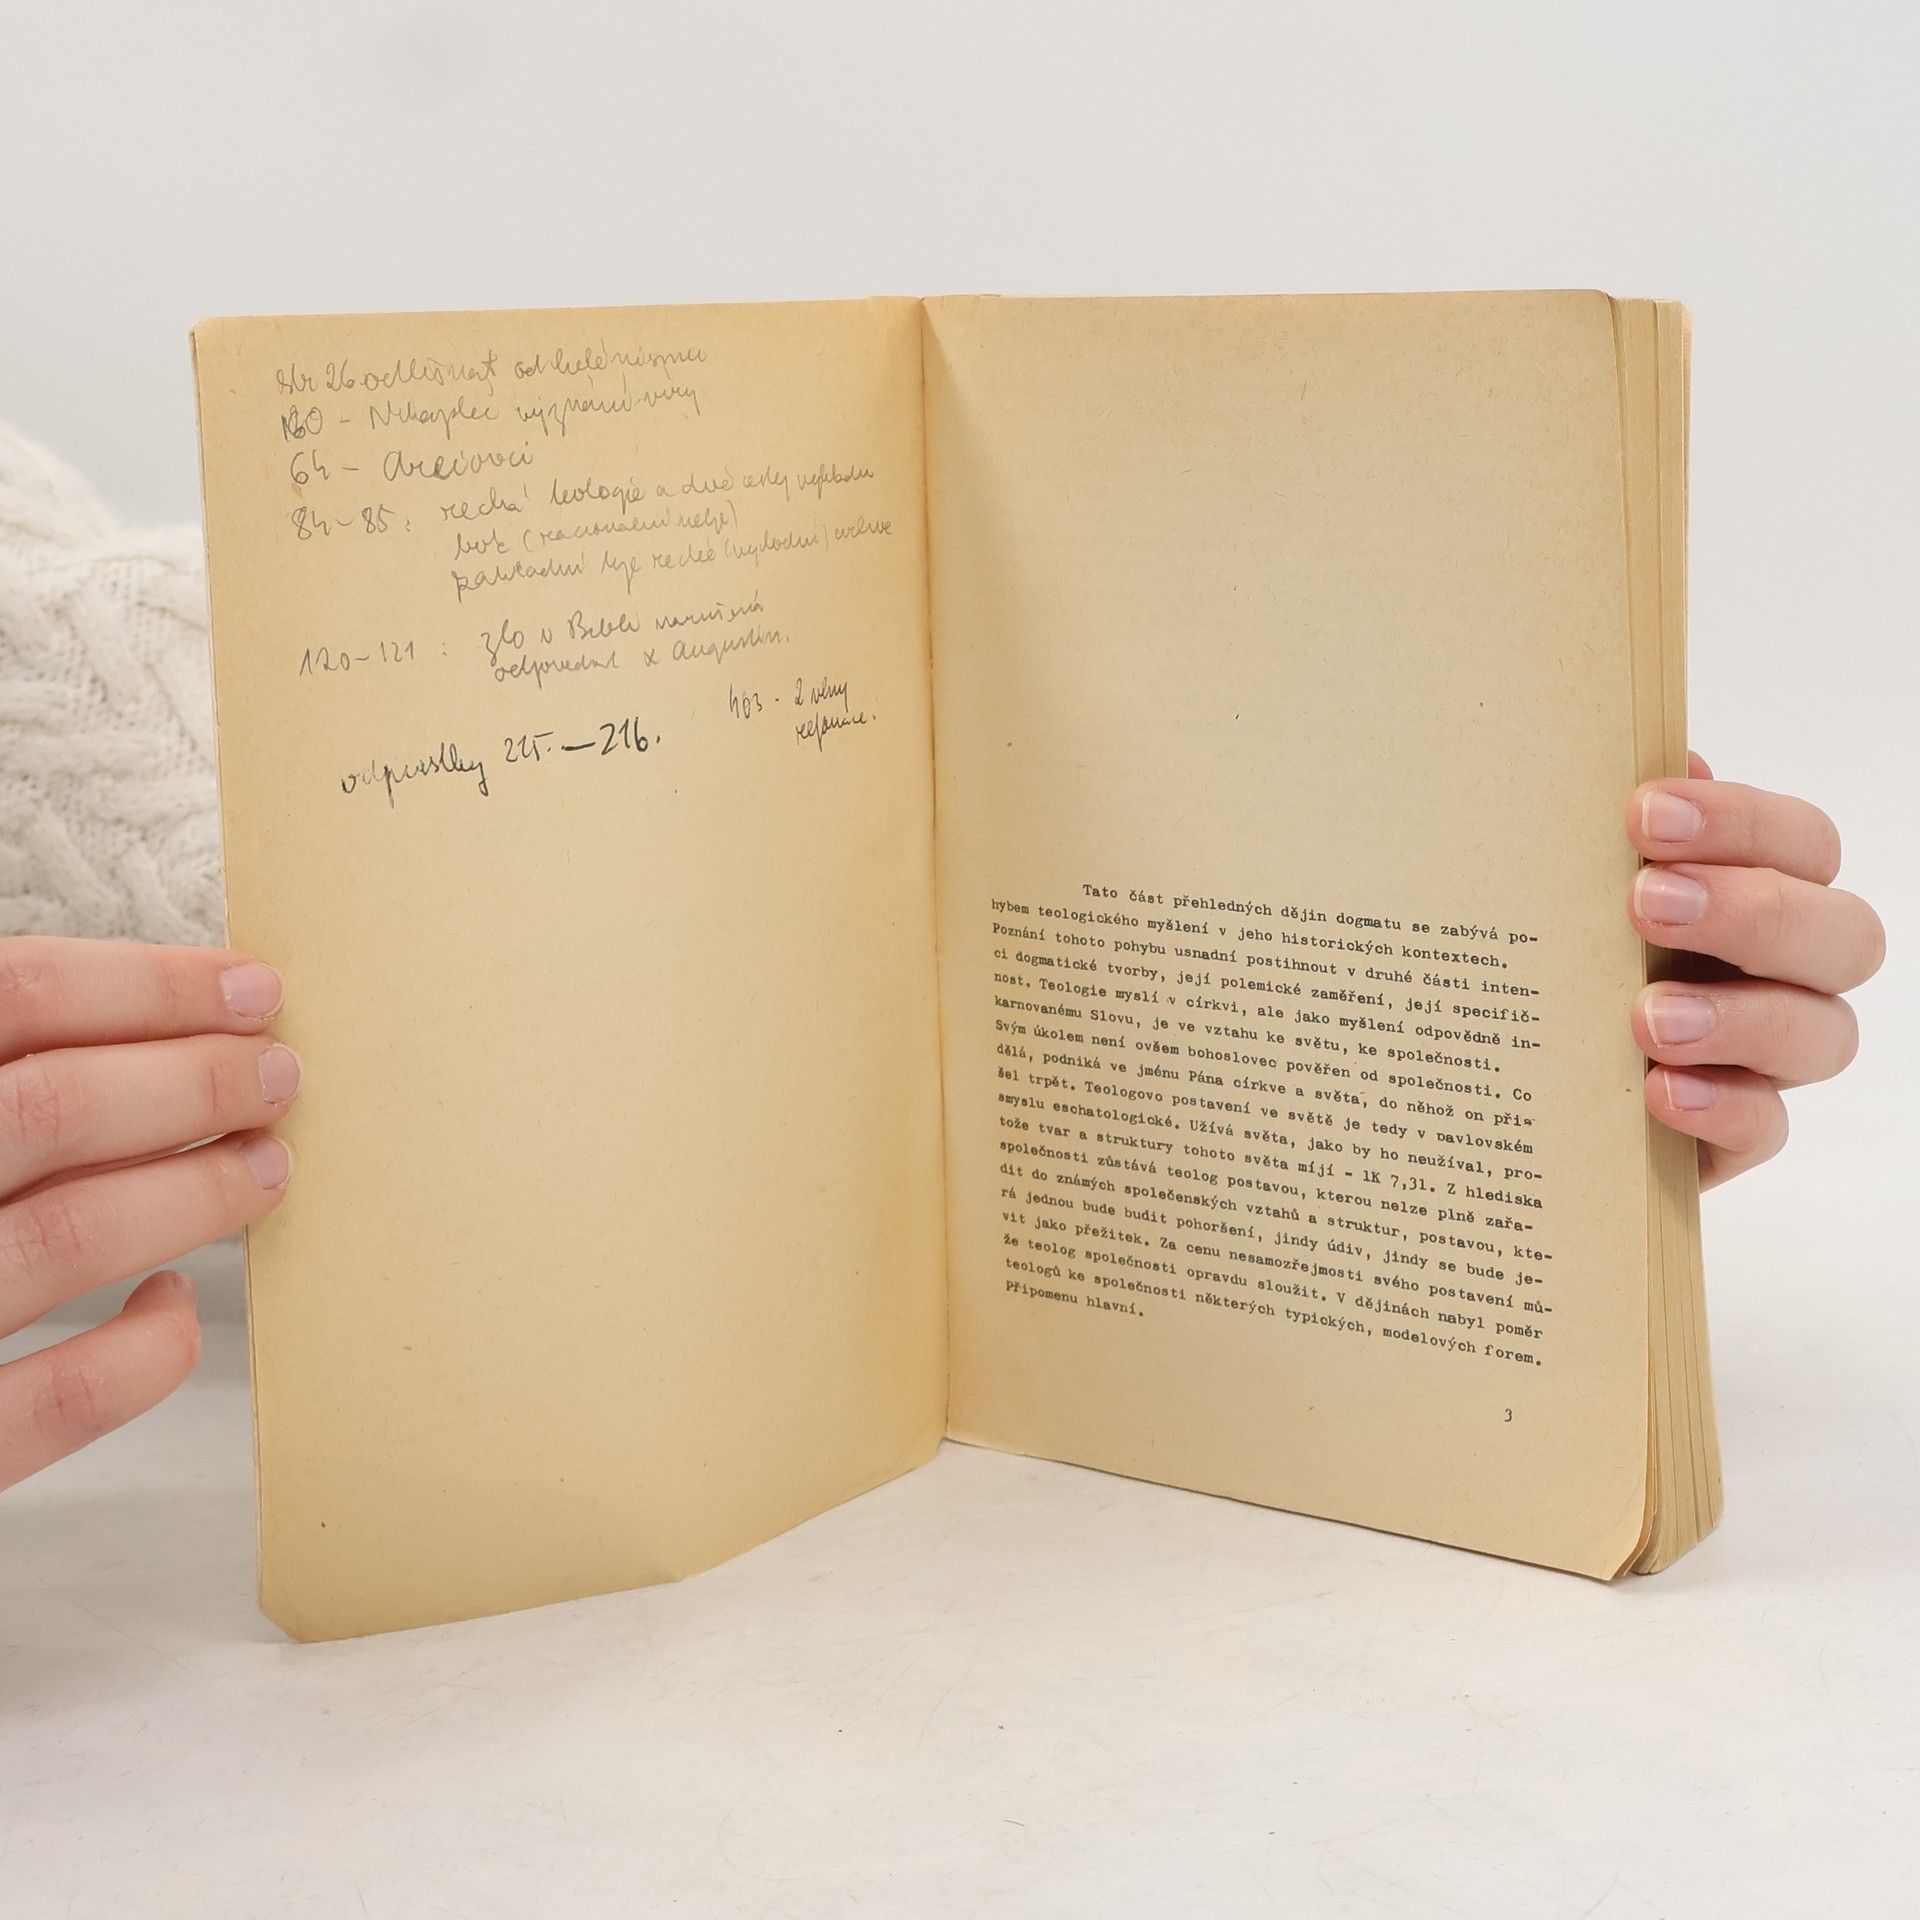 str 26 odlišnost od helénismu
130 - Nikajské vyznání víry
64 - Areiovci
84-85: řecká teologie a dvě cesty výkladu
(racionální
základní
120-121: zlo v Bibli narušená
odpovědnost x Augustin.
403 - 2 vlny
reformace.
odpustky 215. - 216.
Tato část přehledných dějin dogmatu se zabývá po-
hybem teologického myšlení v jeho historických kontextech.
Poznání tohoto pohybu usnadní postihnout v druhé části inten-
ci dogmatické tvorby, její polemické zaměření, její specifič-
nost. Teologie myslí v církvi, ale jako myšlení odpovědně in-
karnovanému Slovu, je ve vztahu ke světu, ke společnosti.
Svým úkolem není ovšem bohoslovec pověřen od společnosti. Co
dělá, podniká ve jménu Pána církve a světa, do něhož on při-
šel trpět. Teologovo postavení ve světě je tedy v pavlovském
smyslu eschatologické. Užívá světa, jako by ho neužíval, pro-
tože tvar a struktury tohoto světa míjí - 1K 7,31. Z hlediska
společnosti zůstává teolog postavou, kterou nelze plně zařa-
dit do známých společenských vztahů a struktur, postavou, kte-
rá jednou bude budit pohoršení, jindy údiv, jindy se bude je-
vit jako přežitek. Za cenu nesamozřejmosti svého postavení mů-
že teolog společnosti opravdu sloužit. V dějinách nabyl poměr
teologů ke společnosti některých typických, modelových forem.
Připomenu hlavní.
3